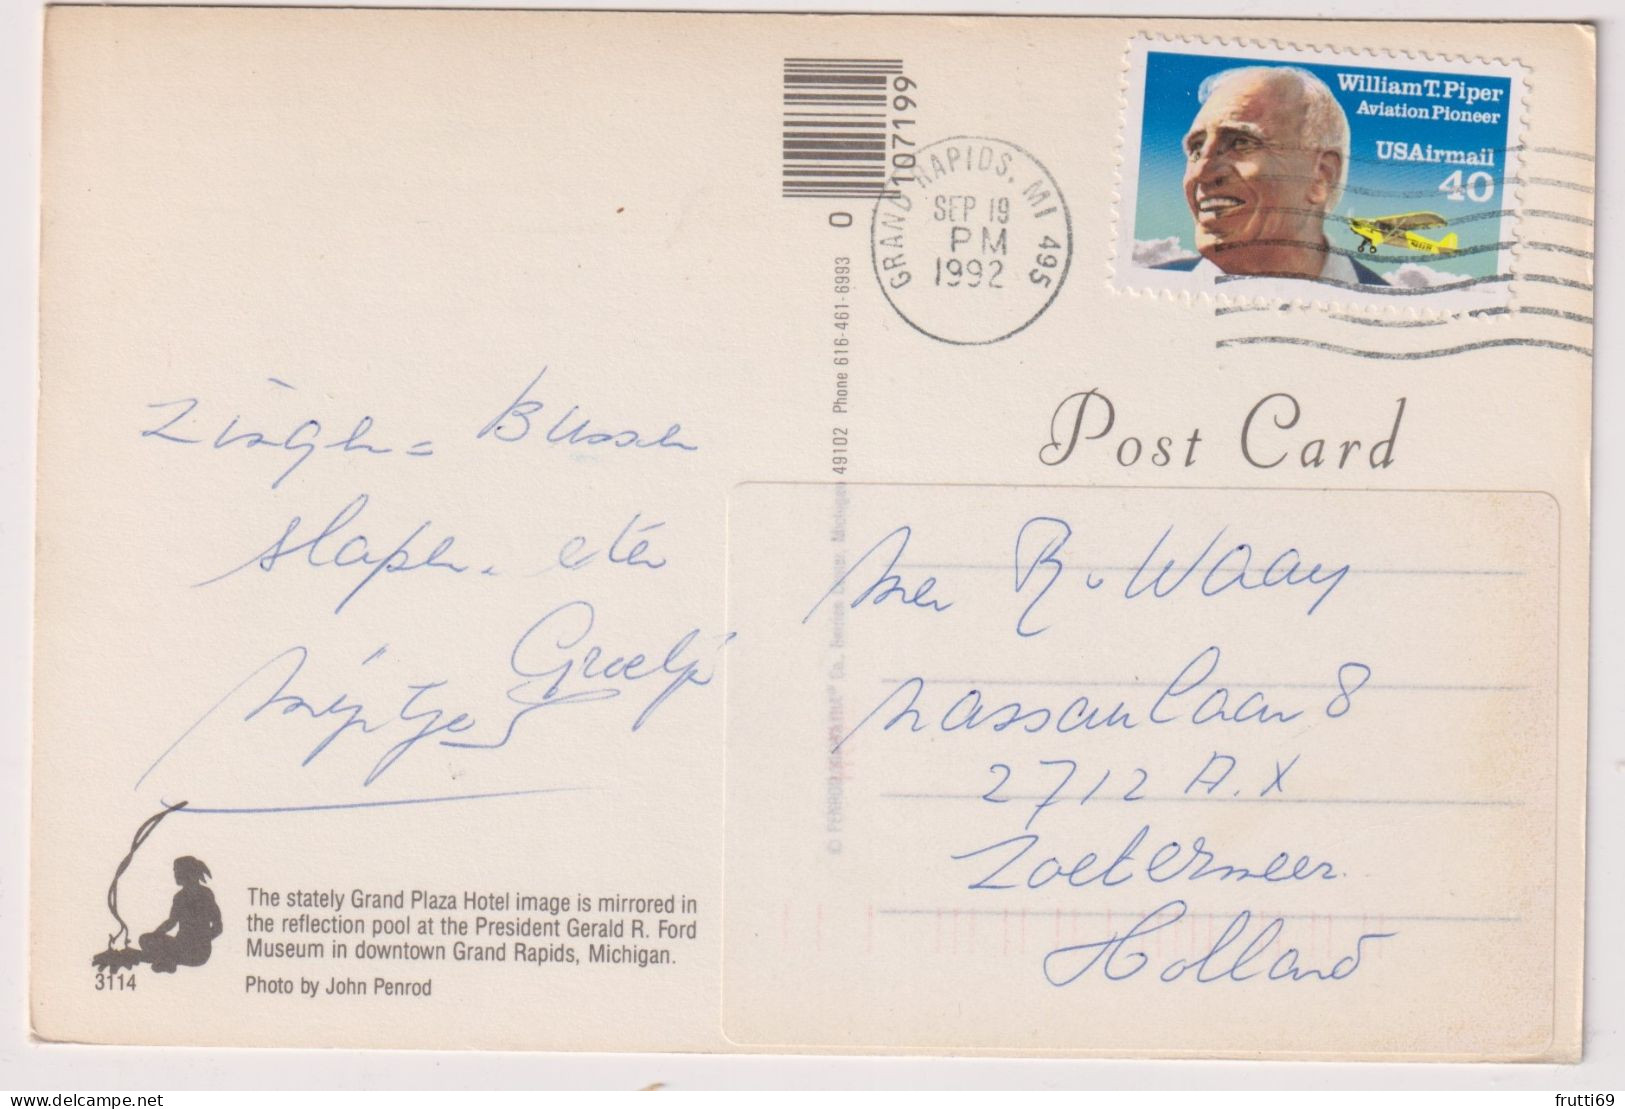 107199
0
GRAND RAPIDS, MI 495
SEP 19
PM
1992
William T. Piper
Aviation Pioneer
USAirmail
40
Post Card
Zingen = Bussen
slapen. eten
Groetjes
Mevr R. v Waay
Nassaulaan 8
2712 A.X
Zoetermeer.
Holland
49102 Phone 616-461-6993
The stately Grand Plaza Hotel image is mirrored in
the reflection pool at the President Gerald R. Ford
Museum in downtown Grand Rapids, Michigan.
Photo by John Penrod
3114
delcampe.net
frutti69